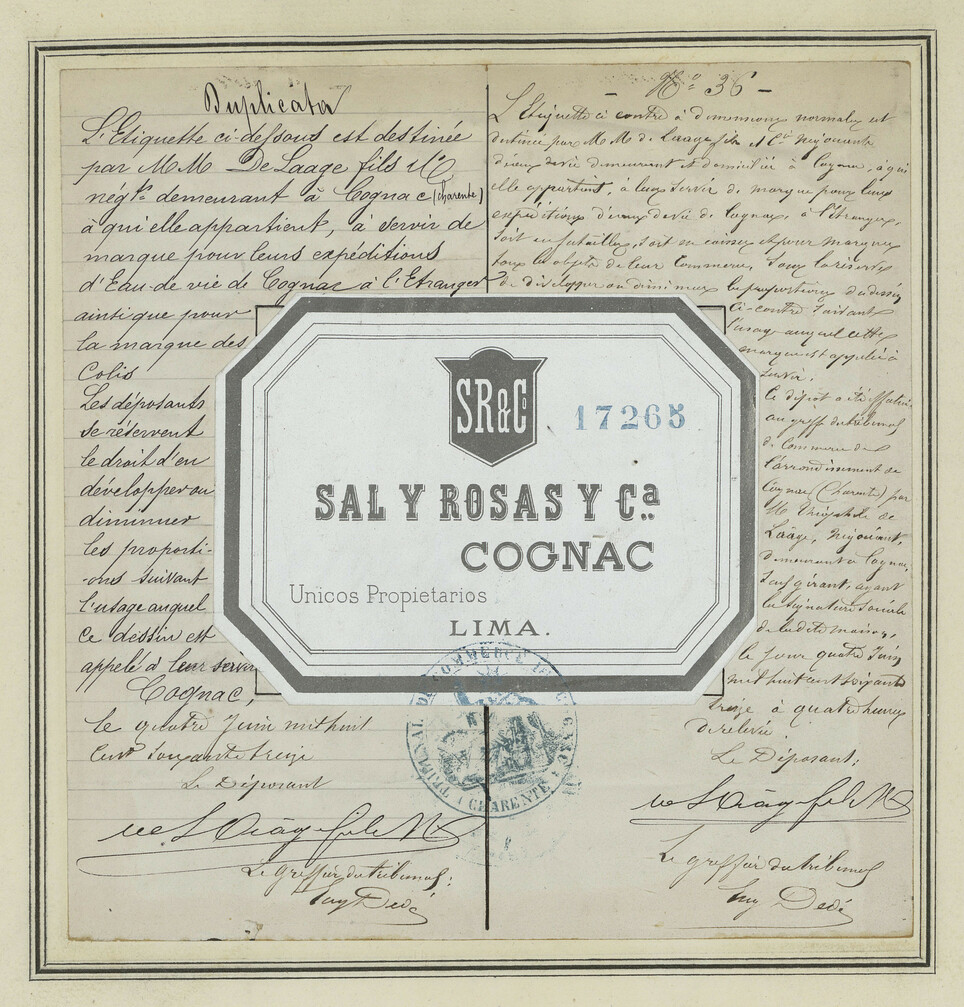 Duplicata
L'Etiquette ci-dessous est destinée
par M M De Laage fils & Cie
négts demeurant à Cognac (charente)
à qui elle appartient, à servir de
marque pour leurs expéditions
d'Eau-de vie de Cognac à l'Etranger
ainsi que pour
la marque des
Colis
Les déposants
se réservent
le droit d'en
développer ou
diminuer
les proporti-
-ons suivant
l'usage auquel
ce dessin est
appelé à leur servir
Cognac,
le quatre Juin mil huit
cent soixante treize
Le Déposant
De Laage fils & Cie
Le greffier du tribunal:
Dedé
No 36 -
L'Etiquette ci contre à dimensions normales est
destinée par M M de Laage fils & Cie Négociants
d'eaux de vie demeurant et domiciliés à Cognac, à qui
elle appartient, à leur servir de marque pour leurs
expéditions d'eaux de vie de Cognac, à l'étranger,
soit en futailles, soit en caisses et pour marquer
tous les objets de leur commerce, sous la réserve
de développer ou diminuer les proportions du dessin
ci-contre suivant
l'usage auquel cette
marque est appelée à
servir.
Ce dépôt a été effectué
au greffe du tribunal
de Commerce de
l'arrondissement de
Cognac (Charente) par
M de
Laage, Négociant,
demeurant à Cognac,
gérant, ayant
la signature sociale
de la dite maison,
le jour quatre Juin
mil huit cent soixante
treize à quatre heures
de relevée
Le Déposant:
De Laage fils & Cie
Le greffier du tribunal
Dedé
SR&Co
17265
SAL Y ROSAS Y Ca.
COGNAC
Unicos Propietarios
LIMA.
TRIBUNAL DE COMMERCE DE COGNAC
(CHARENTE)